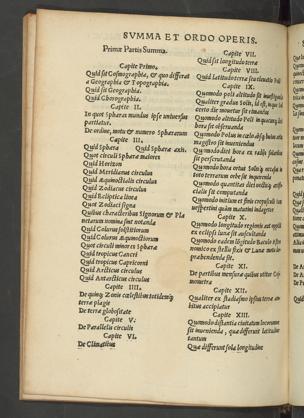 SVMMA ET ORDO OPERIS.
Primæ Partis Summa.
Capite Primo.
Quid sit Cosmographia, & quo differat
a Geographia & Topographia.
Quid sit Geographia.
Quid Chorographia.
Capite II.
In quot Sphæras mundus ipse vniuersus
partiatur.
De ordine, motu & numero Sphærarum
Capite III.
Quid Sphæra Quid Sphæræ axis.
Quot circuli Sphæræ maiores
Quid Horizon
Quid Meridianus circulus
Quid Æquinoctialis circulus
Quid Zodiacus circulus
Quid Ecliptica linea
Quot Zodiaci signa
Quibus characteribus Signorum & Pla
netarum nomina sint notanda
Quid Colurus solstitiorum
Quid Colurus Æquinoctiorum
Quot circuli minores Sphæræ
Quid tropicus Cancri
Quid tropicus Capricorni
Quid Arcticus circulus
Quid Antarcticus circulus
Capite IIII.
De quinq; Zonis cælestium totidemq;
terræ plagis
De terræ globositate
Capite V.
De Parallelis circulis
Capite VI.
De Climatibus
Capite VII.
Quid sit longitudo terræ
Capite VIII.
Quid Latitudo terræ seu eleuatio Poli
Capite IX.
Quomodo poli altitudo sit inuestiganda
Qualiter gradus Solis, id est, in quo
certo die inueniatur
Quomodo altitudo Poli in quacunq; diei
hora sit obseruanda
Quomodo Polus in cælo absq; huius
magistro sit inueniendus
Quomodo diei hora ex radijs solaribus
sit perscrutanda
Quomodo hora ortus Solis & occasus in
toto terrarum orbe sit inquirenda
Quomodo quantitas diei noctisq; artifi-
cialis sit computanda
Quomodo initium et finis crepusculi
uespertini quàm matutini indagetur
Capite X.
Quomodo longitudo regionis aut oppidi
ex eclipsi lunæ sit auscultanda
Quomodo eadem logitudo Baculo Astro
nomico ex stellis fixis & Lunæ motu
præhendenda sit.
Capite XI.
De partibus mensuræ quibus utitur Cos-
mometra
Capite XII.
Qualiter ex stadiasmo ipsius terræ am-
bitus accipiatur
Capite XIII.
Quomodo distantia ciuitatum locorumue
sit inuenienda, quæ differunt latitudine
tantum
Quæ differunt sola longitudine